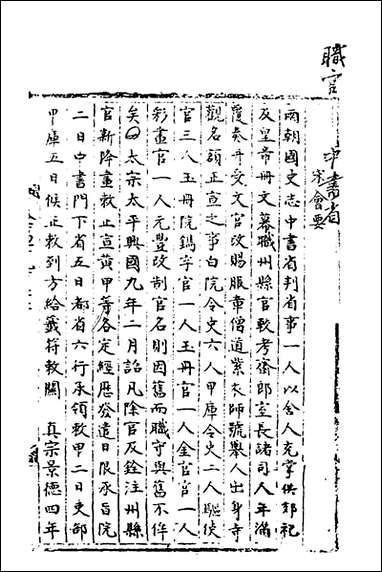 職官
中書省
宋會要
兩朝國史志中書省判省事一人以舍人充掌供郊祀
及皇帝冊文幕職州縣官較考齋郎室長諸司人年滿
覆奏并受文官改賜服章僧道紫衣師號舉人出身寺
觀名額正宣之事白院令史六人甲庫令史二人驅使
官三人玉冊院鐫字官一人玉冊官一人金官官一人
彩畫官一人元豐改制官名則因舊而職守與舊不侔
矣 太宗太平興國九年二月詔凡除官及銓注州縣
官新降畫敕正宣黃甲等各定經歷發遣日限承旨院
二日中書門下省五日都省六行承領敕甲二日吏部
甲庫五日候正敕到方給籤符敕關 真宗景德四年